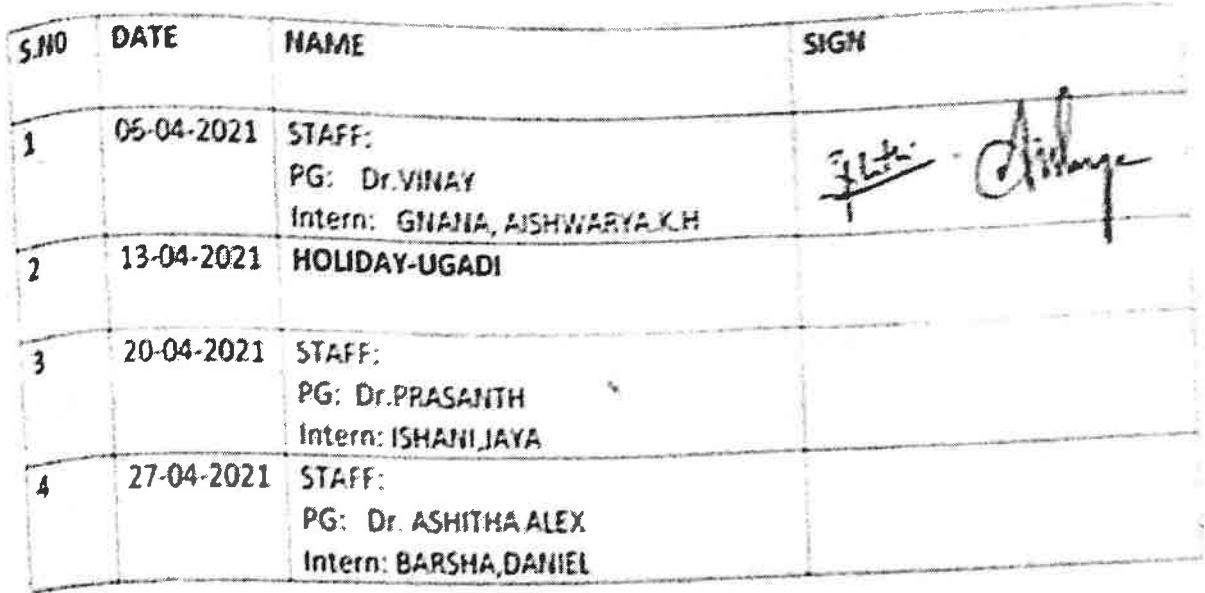 S.NO DATE NAME SIGN
1 06-04-2021 STAFF:
PG: Dr.VINAY
Intern: GNANA, AISHWARYA.K.H
Aishwarya
2 13-04-2021 HOLIDAY-UGADI
3 20-04-2021 STAFF:
PG: Dr.PRASANTH
Intern: ISHANI,JAYA
4 27-04-2021 STAFF:
PG: Dr. ASHITHA ALEX
Intern: BARSHA,DANIEL